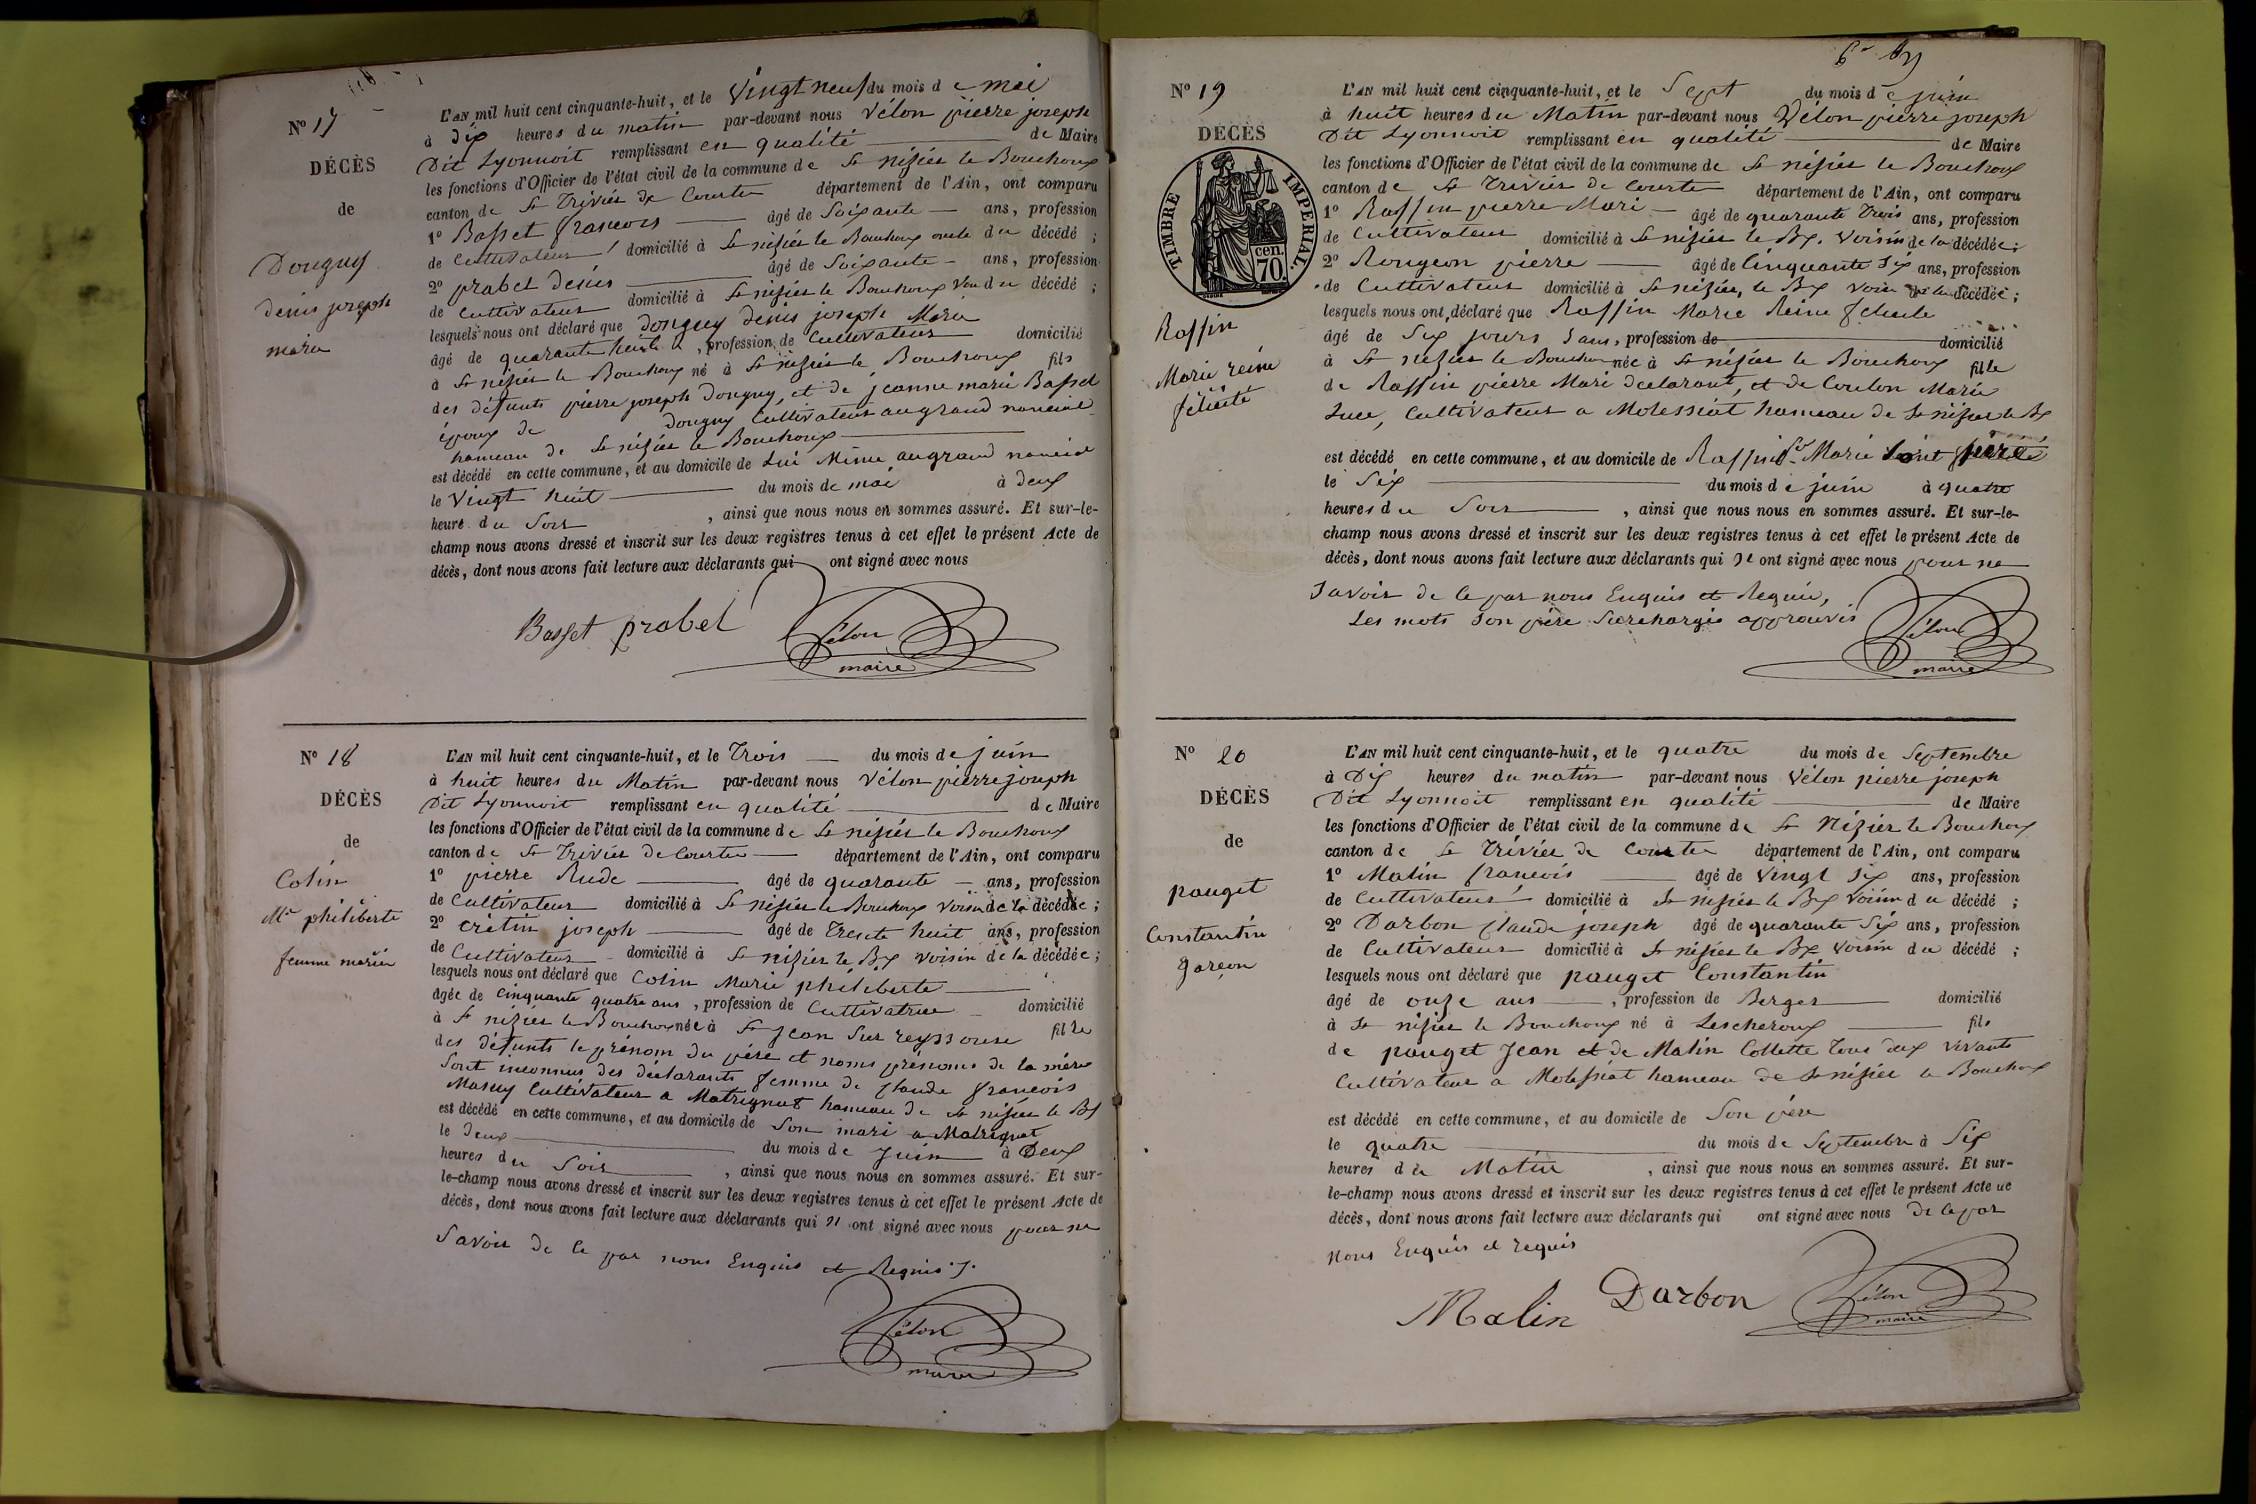 Nº 17
DÉCÈS
de
Donguy
denis joseph
marie
L'AN mil huit cent cinquante-huit, et le Vingt neuf du mois de mai
à Dix heures du matin par-devant nous Vélon pierre joseph
Dit Lyonnoit remplissant en qualité de Maire
les fonctions d'Officier de l'état civil de la commune de St nizier le Bouchoux
canton de St Trivier de Courte département de l'Ain, ont comparu
1º Basset francois âgé de Soixante ans, profession
de Cultivateur domicilié à St nizier le Bouchoux oncle du décédé ;
2º prabel denis âgé de Soixante ans, profession
de Cultivateur domicilié à St nizier le Bouchoux du décédé ;
lesquels nous ont déclaré que donguy denis joseph Marie
âgé de quarante huit a , profession de Cultivateur domicilié
à St nizier le Bouchoux né à St nizier le Bouchoux fils
des défunts pierre joseph Donguy, et de jeanne marie Basset
époux de donguy Cultivateur au grand
hameau de St nizier le Bouchoux
est décédé en cette commune, et au domicile de Lui Même au grand
le Vingt huit du mois de mai à deux
heure du Soir , ainsi que nous nous en sommes assuré. Et sur-le-
champ nous avons dressé et inscrit sur les deux registres tenus à cet effet le présent Acte de
décès, dont nous avons fait lecture aux déclarants qui ont signé avec nous
Basset prabel Vélon
maire
Nº 18
DÉCÈS
de
Colin
Mie philiberte
femme marié
L'AN mil huit cent cinquante-huit, et le Trois du mois de juin
à huit heures du Matin par-devant nous Vélon pierre joseph
Dit Lyonnoit remplissant en qualité de Maire
les fonctions d'Officier de l'état civil de la commune de St nizier le Bouchoux
canton de St Trivier de Courte département de l'Ain, ont comparu
1º pierre Rude âgé de quarante ans, profession
de Cultivateur domicilié à St nizier le Bouchoux voisin de la décédée ;
2º crétin joseph âgé de Trente huit ans, profession
de Cultivateur domicilié à St nizier le Bx voisin de la décédée ;
lesquels nous ont déclaré que Colin Marie philiberte
âgée de Cinquante quatre ans , profession de Cultivatrice domicilié
à St nizier le Bouchoux née à St Jean Sur reyssouse fille
des défunts le prénom du père et noms prénoms de la mère
Sont inconnus des déclarants femme de Claude francois
Cultivateur a hameau de St nizier le Bx
est décédé en cette commune, et au domicile de Son mari a
le deux du mois de Juin à Deux
heures du Soir , ainsi que nous nous en sommes assuré. Et sur-
le-champ nous avons dressé et inscrit sur les deux registres tenus à cet effet le présent Acte de
décès, dont nous avons fait lecture aux déclarants qui n ont signé avec nous pour ne
Savoir de le par nous Enquis et Requis
Vélon
maire
Nº 19
DÉCÈS
TIMBRE IMPERIAL.
70 cen.
Raffin
Marie reine
félicité
L'AN mil huit cent cinquante-huit, et le Sept du mois de juin
à huit heures du Matin par-devant nous Vélon pierre joseph
Dit Lyonnoit remplissant en qualité de Maire
les fonctions d'Officier de l'état civil de la commune de St nizier le Bouchoux
canton de St Trivier de Courte département de l'Ain, ont comparu
1º Raffin pierre Marie âgé de quarante Trois ans, profession
de Cultivateur domicilié à St nizier le Bx. Voisin de la décédée ;
2º Rongeon pierre âgé de Cinquante Six ans, profession
de Cultivateur domicilié à St nizier, le Bx voisin de la décédée ;
lesquels nous ont déclaré que Raffin Marie Reine félicité
âgé de Six jours ans, profession de domicilié
à St nizier le Bouchoux née à St nizier le Bouchoux fille
de Raffin pierre Marie déclarant, et de Coulon Marie
Luce, Cultivateur a Molessiat hameau de St nizier le Bx
est décédé en cette commune, et au domicile de Raffin Marie père
le Six du mois de juin à quatre
heures du Soir , ainsi que nous nous en sommes assuré. Et sur-le-
champ nous avons dressé et inscrit sur les deux registres tenus à cet effet le présent Acte de
décès, dont nous avons fait lecture aux déclarants qui n ont signé avec nous pour ne
Savoir de le par nous Enquis et Requis,
Les mots Son père Surchargés approuvés
Vélon
maire
Nº 20
DÉCÈS
de
pauget
Constantin
garçon
L'AN mil huit cent cinquante-huit, et le quatre du mois de Septembre
à Dix heures du matin par-devant nous Vélon pierre joseph
Dit Lyonnoit remplissant en qualité de Maire
les fonctions d'Officier de l'état civil de la commune de St Nizier le Bouchoux
canton de St Trivier de Courte département de l'Ain, ont comparu
1º Malin francois âgé de Vingt Six ans, profession
de Cultivateur domicilié à St nizier le Bx Voisin du décédé ;
2º Darbon Claude joseph âgé de quarante Six ans, profession
de Cultivateur domicilié à St nizier le Bx Voisin du décédé ;
lesquels nous ont déclaré que pauget Constantin
âgé de onze ans , profession de Berger domicilié
à St nizier le Bouchoux né à Lescheroux fils
de pauget Jean et de Malin Collette Tous deux vivants
Cultivateur a Molessiat hameau de St nizier le Bouchoux
est décédé en cette commune, et au domicile de Son père
le quatre du mois de Septembre à Six
heures du Matin , ainsi que nous nous en sommes assuré. Et sur-
le-champ nous avons dressé et inscrit sur les deux registres tenus à cet effet le présent Acte de
décès, dont nous avons fait lecture aux déclarants qui ont signé avec nous de le par
nous Enquis et requis
Malin Darbon Vélon
maire